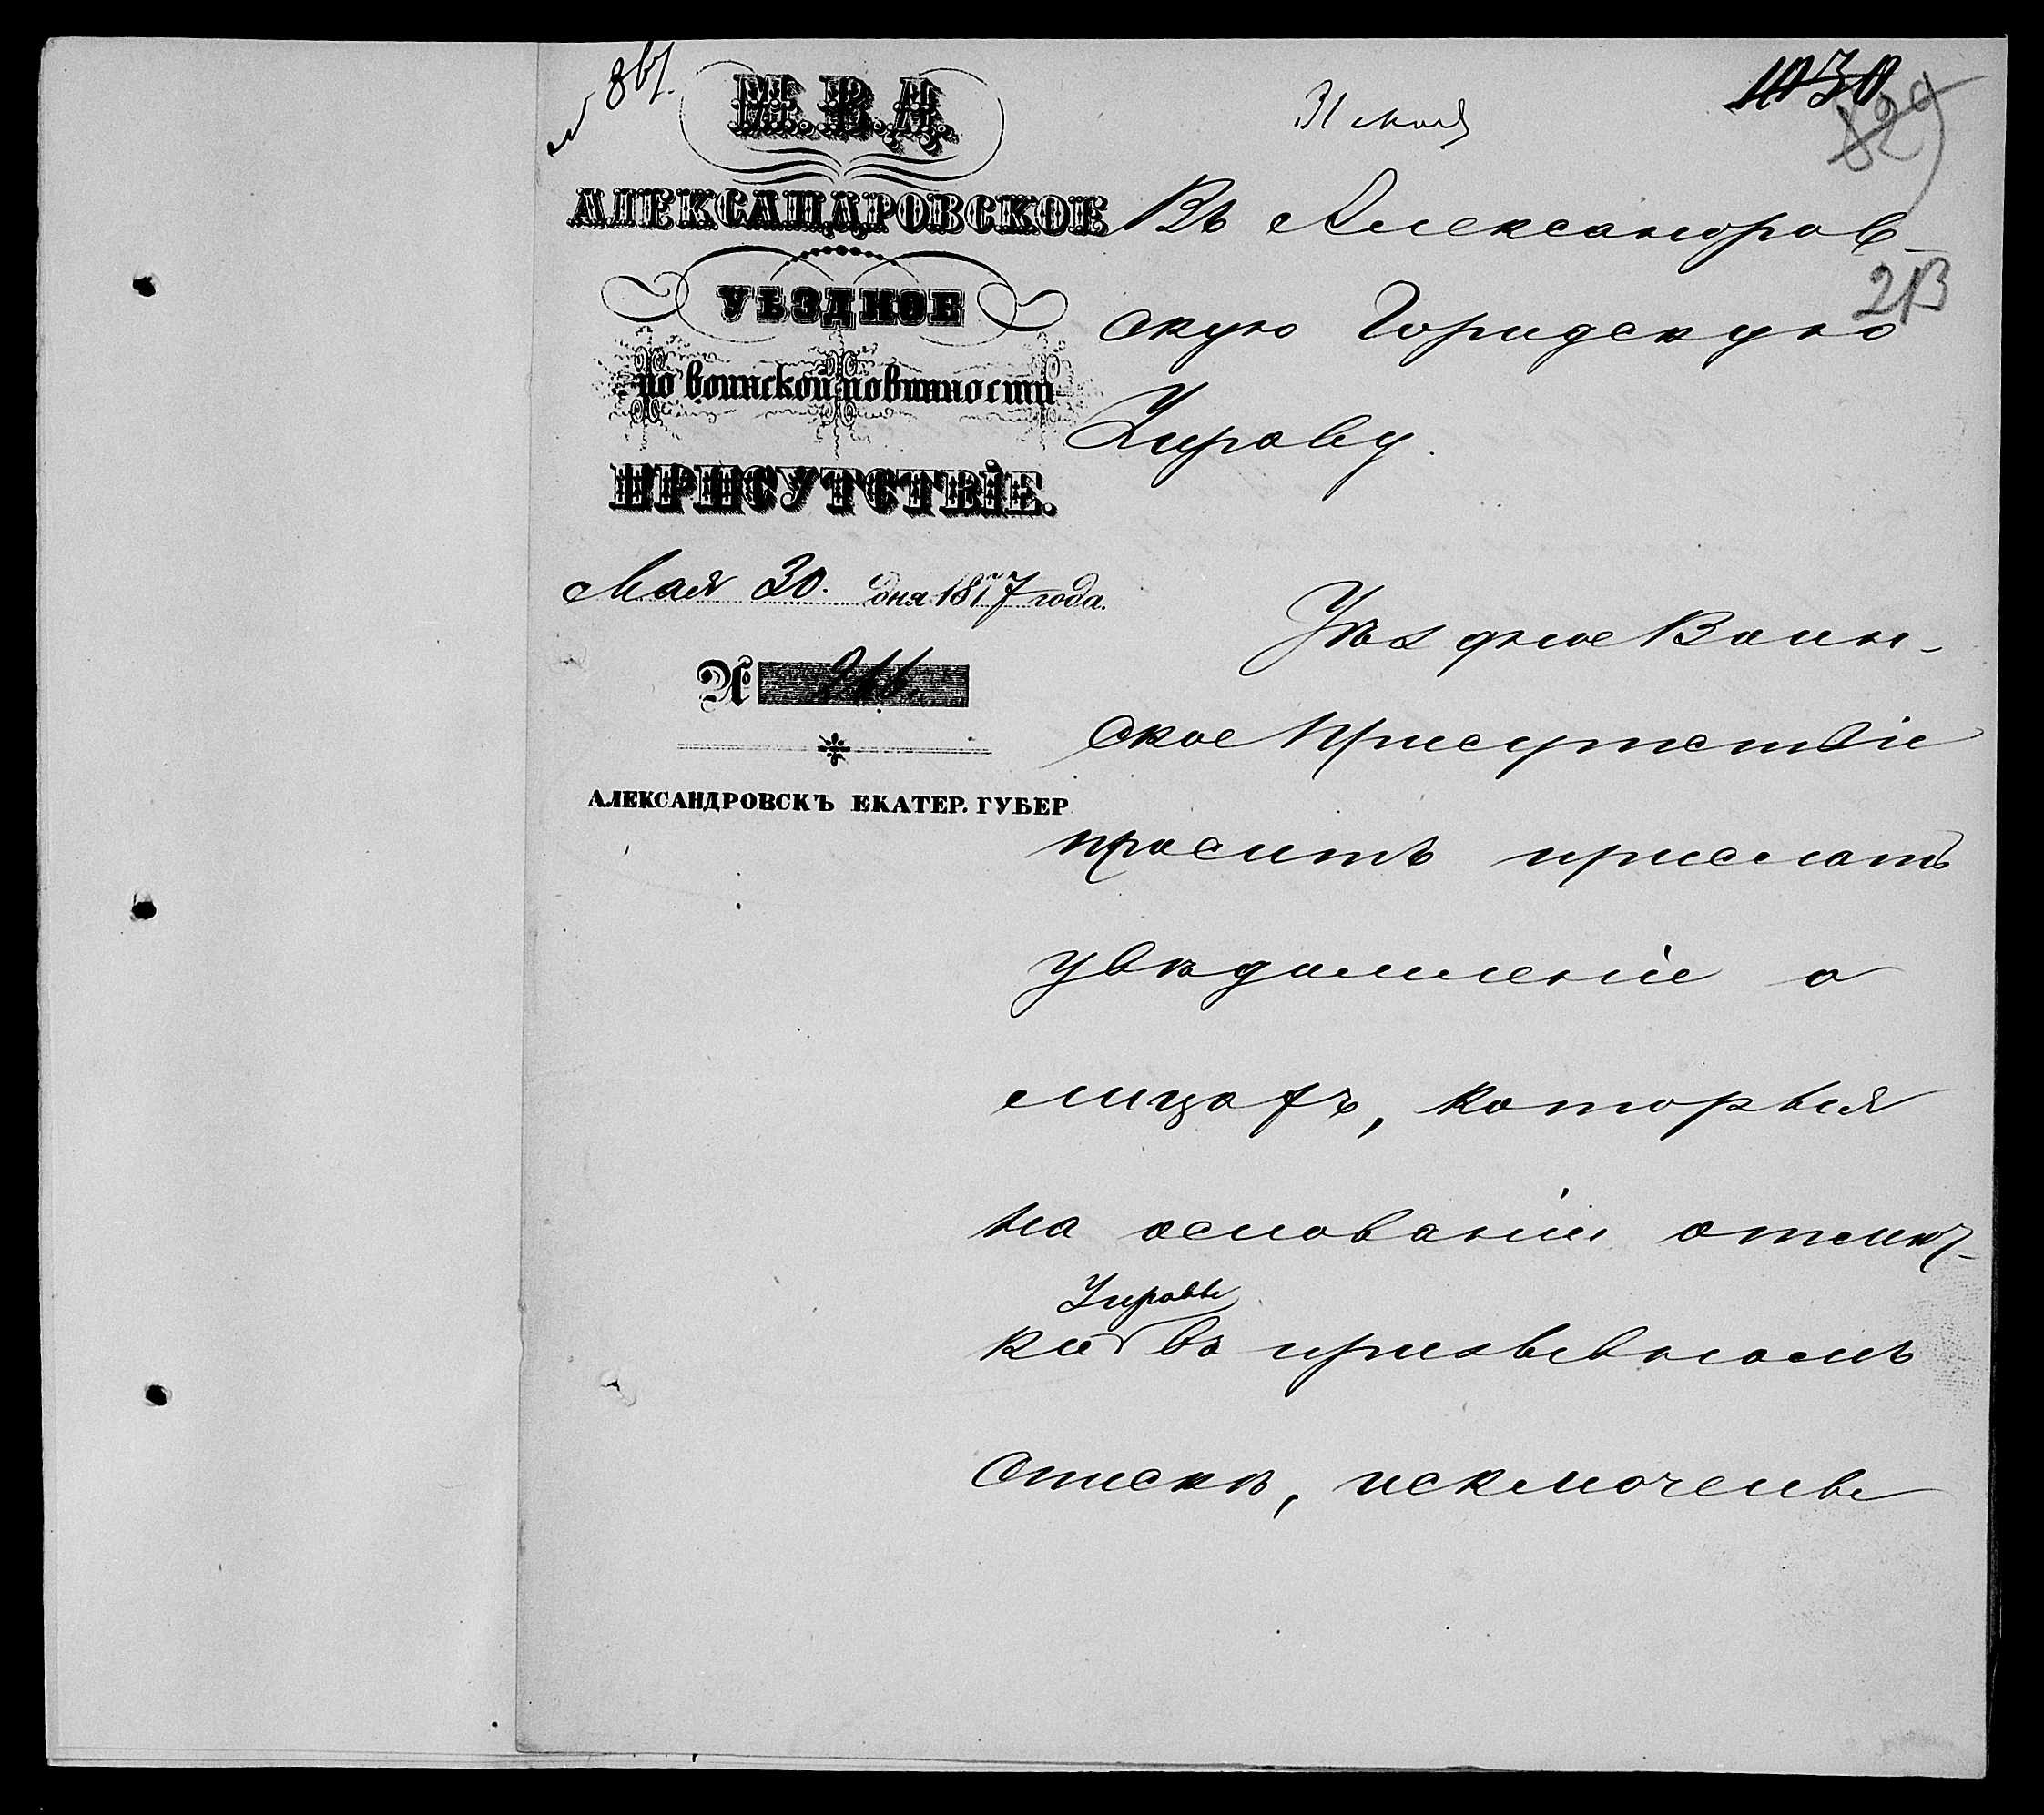 867.
М. В. Д.
АЛЕКСАНДРОВСКОЕ
УѢЗДНОЕ
по воинской повинности
ПРИСУТСТВІЕ.
Мая 30. дня 1877 года.
№
АЛЕКСАНДРОВСКЪ ЕКАТЕР. ГУБЕР
31 мая
1030
829
213
Въ Александров-
скую Городскую
Управу.
Уѣздное Воин-
ское Присутствіе
проситъ прислать
увѣдомленіе о
лицахъ, которыя
на основаніи отмѣт-
ки Управы въ призывномъ
спискѣ, исключены